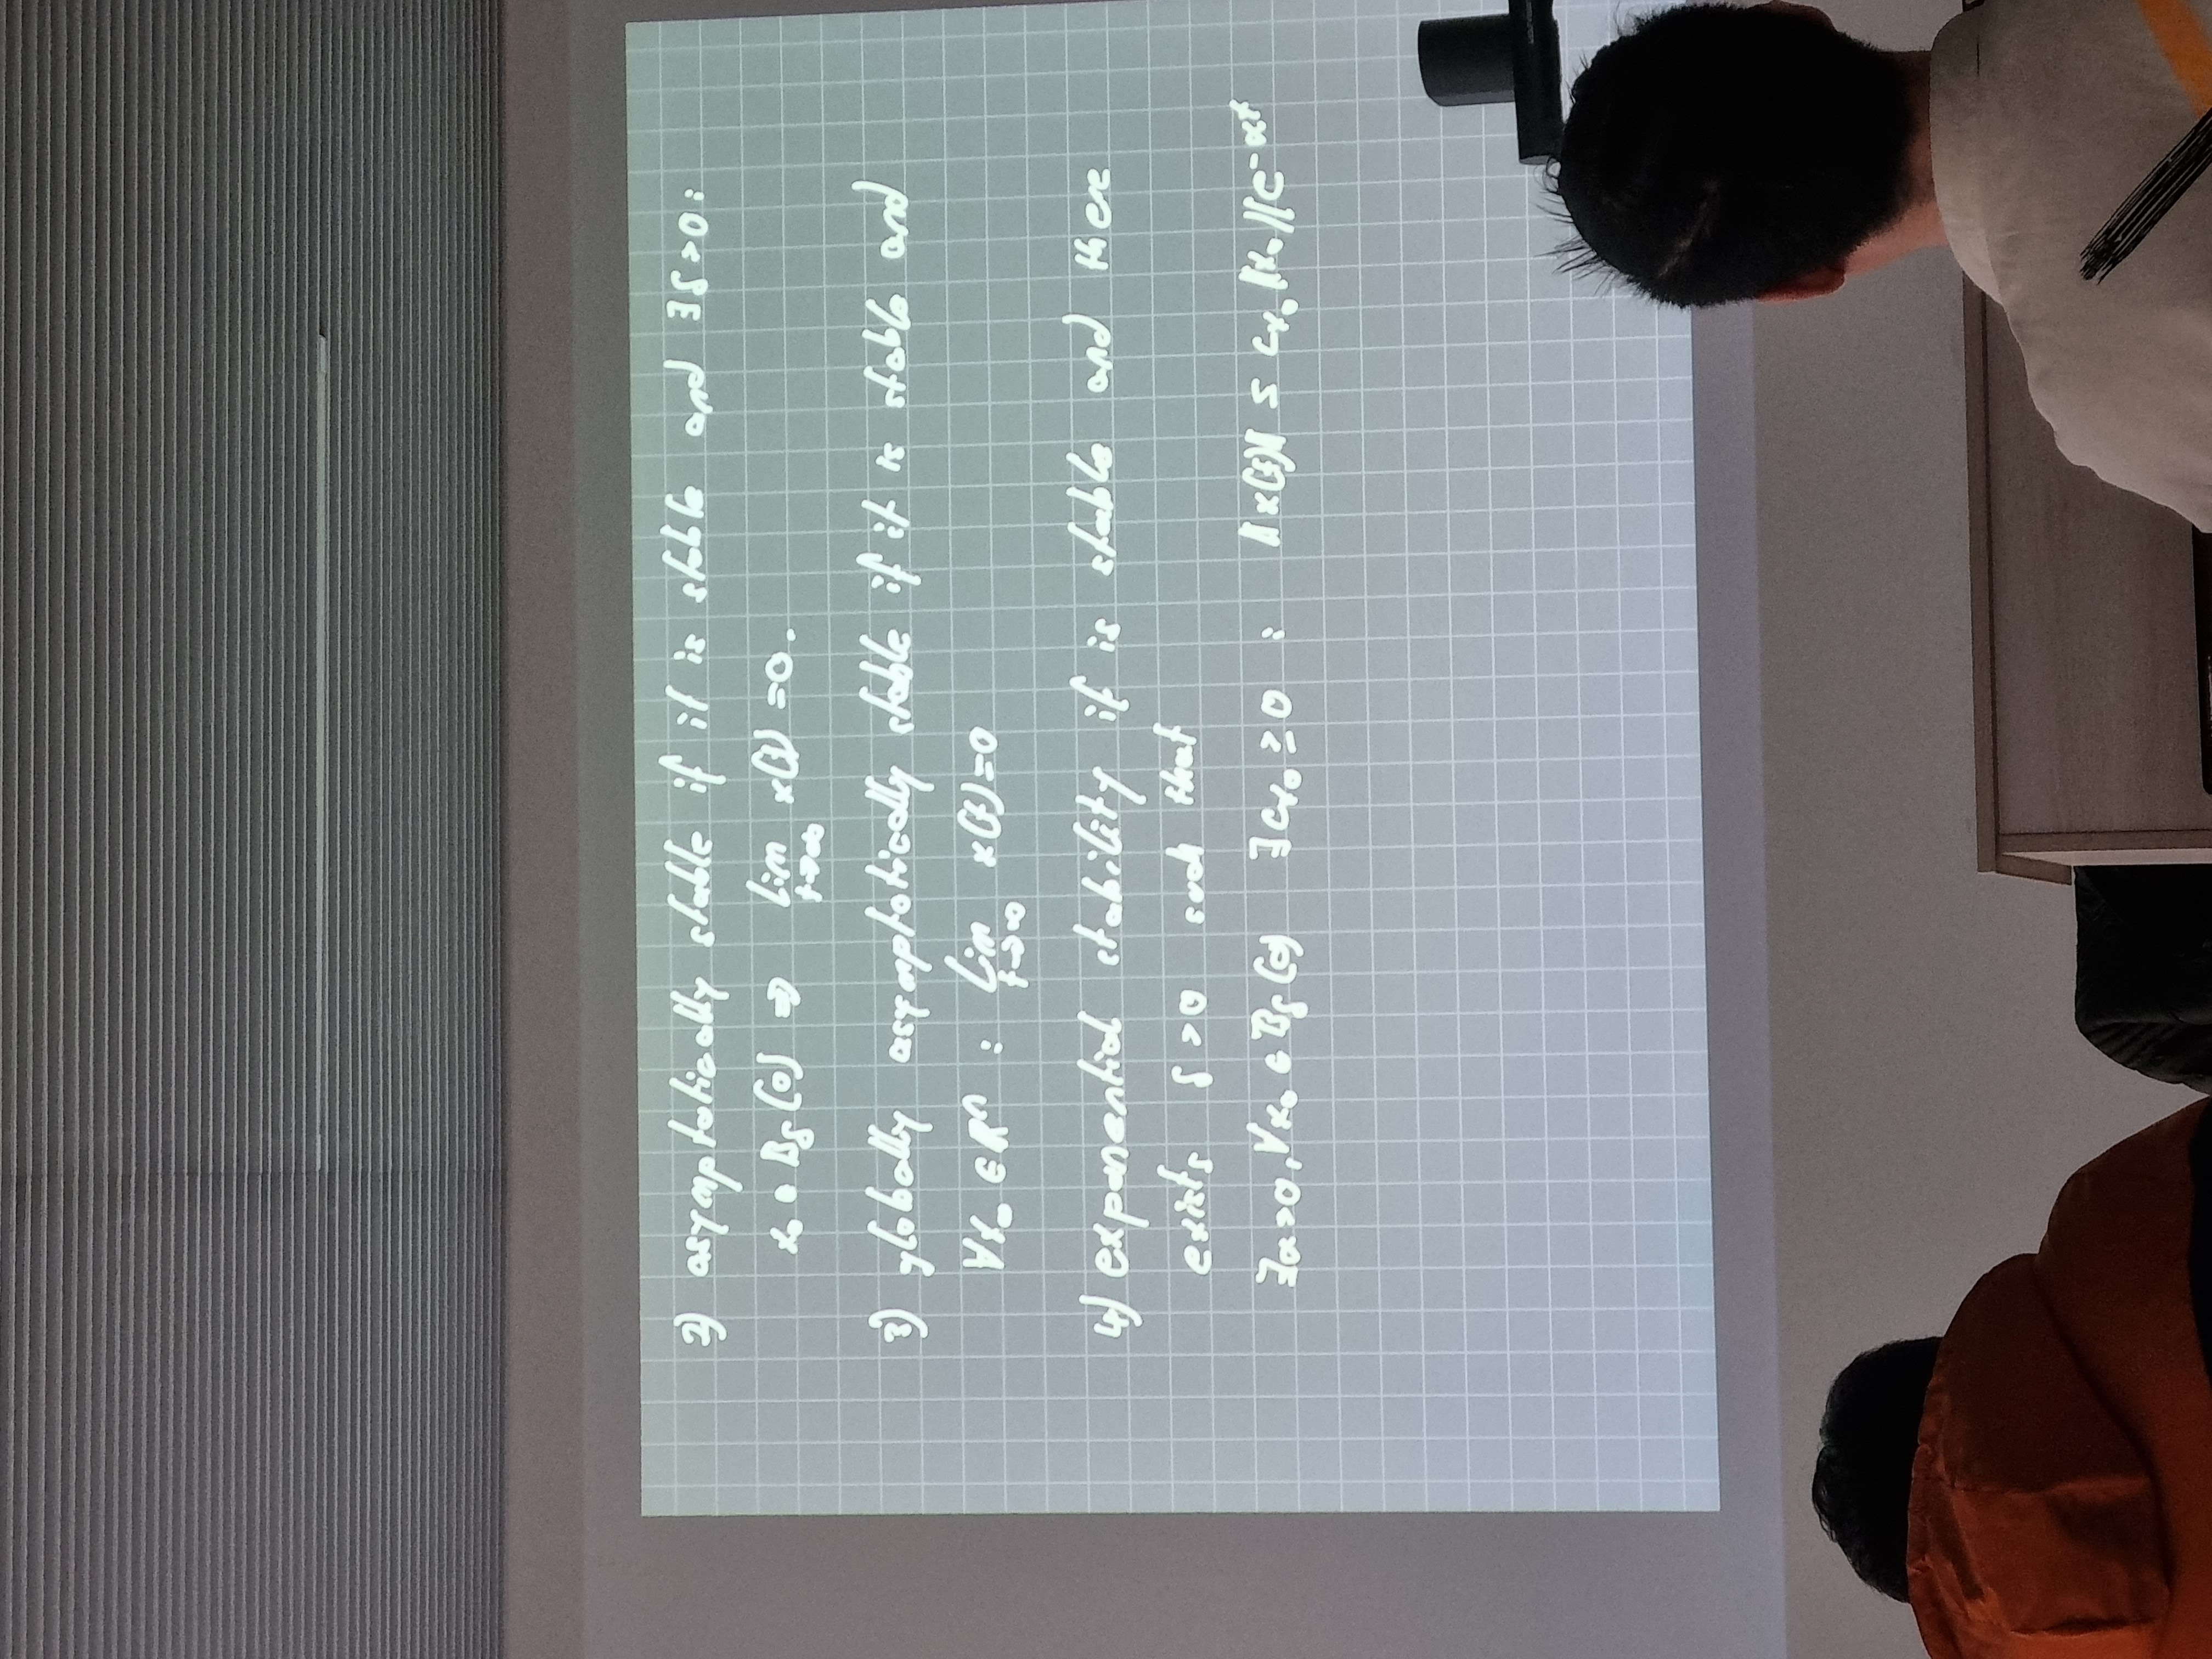 2) asymptotically stable if it is stable and ∃δ>0:
x₀ ∈ B_δ(0) ⇒ lim_{t→∞} x(t) = 0.
3) globally asymptotically stable if it is stable and
∀x₀ ∈ ℝⁿ : lim_{t→∞} x(t)=0
4) exponential stability if is stable and there
exists δ > 0 such that
∃α>0, ∀x₀ ∈ B_δ(0) ∃c_{x₀} ≥ 0 : ‖x(t)‖ ≤ c_{x₀} ‖x₀‖ e^{-αt}